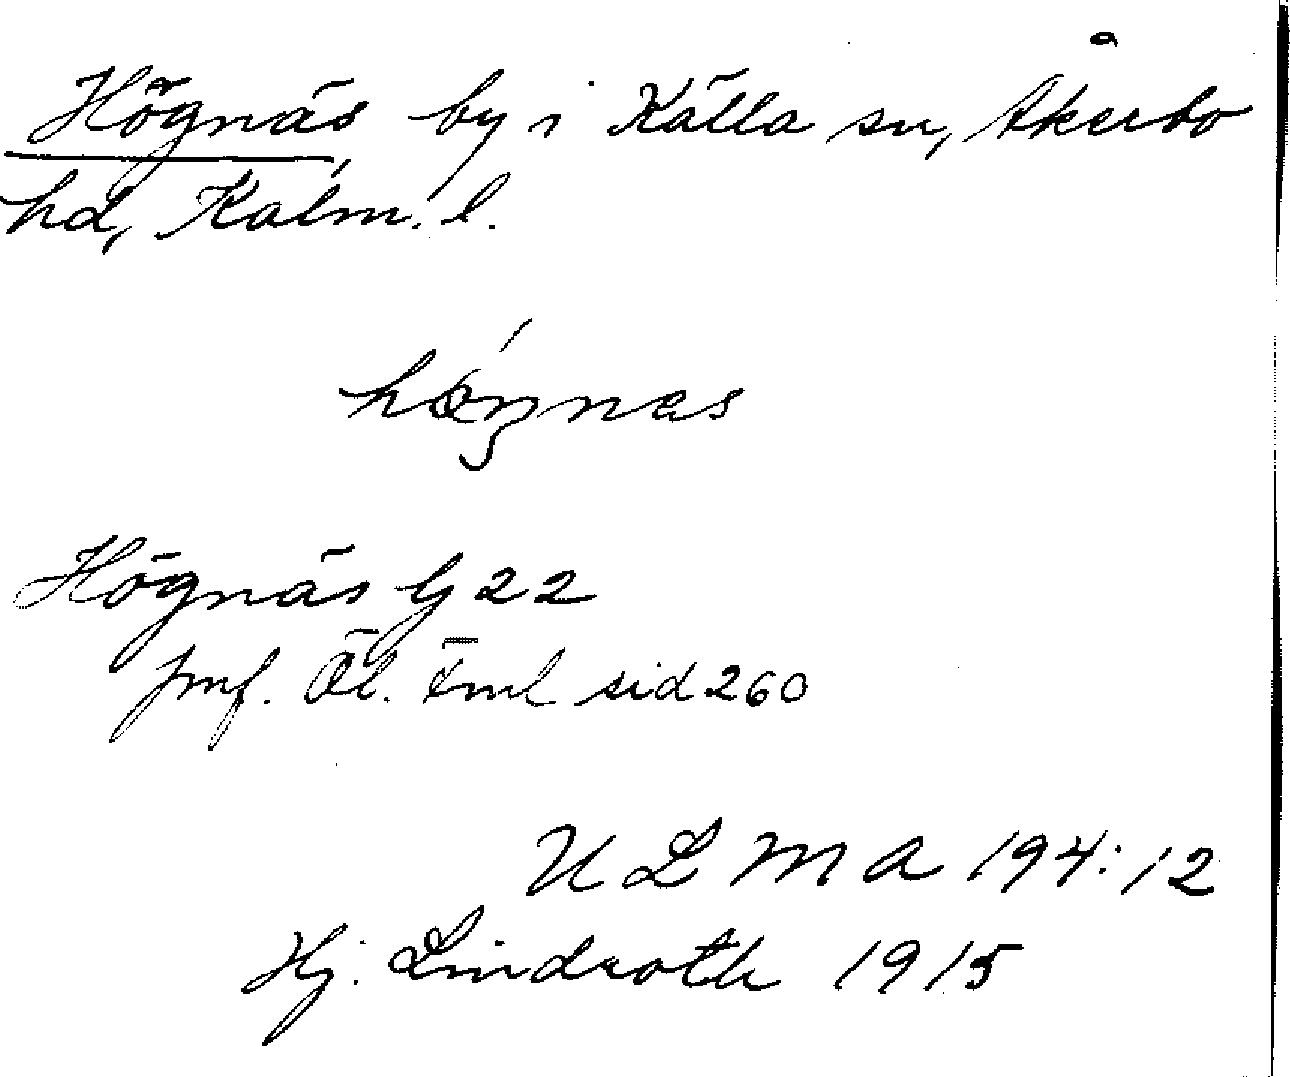 Högnäs by i Källa sn, Åkerbo
hd, Kalm. l.
Högnäs G 22
jmf. Öl. Fml sid 260
ULMA 194:12
Hj. Lindroth 1915